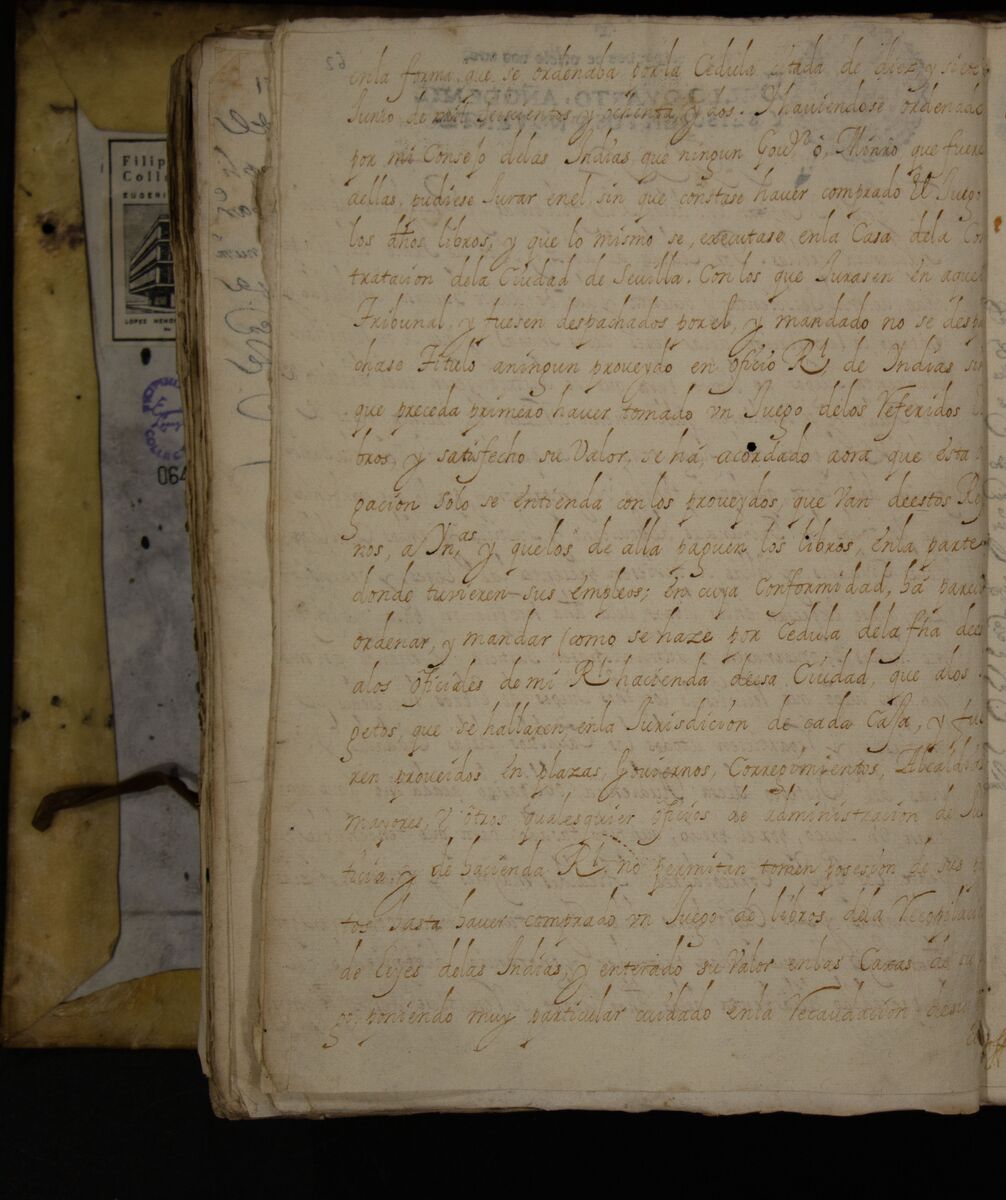 enla forma, que se ordenaba por la Cedula citada de diez y siete
Junio de mil seiscientos y ochenta y dos. Y haviendose ordenado
por mi Consejo delas Indias, que ningun Gouor o, Minro que fuere
aellas, pudiese Jurar enel, sin que constase haver comprado el Juego
los dhos libros, y que lo mismo se, executase enla Casa dela Con
tratacion dela Ciudad de Sevilla. Con los que Jurasen en aquel
Tribunal, y fuesen despachados por el, y mandado no se despa
chase Titulo aningun proveydo en oficio Rl de Indias sin
que preceda primero haver tomado un Juego delos referidos li
bros, y satisfecho su Valor, se ha, acordado aora que esta
gacion solo se entienda con los proveydos, que Van deestos Rey
nos, a Ynas y quelos de alla paguen los libros, enla parte
donde tuvieren sus empleos; en cuya Conformidad, ha pareci
ordenar, y mandar (como se haze por Cedula dela fha dees
alos oficiales de mi Rl hacienda deesa Ciudad, que alos
getos, que se hallaren enla Jurisdicion de cada Caja, y fue
ren proveidos en plazas, Goviernos, Corregimientos, Alcaldias
mayores, y otros qualesquier oficios de administracion de Jus
ticia, y de hacienda Rl no permitan tomen posesion de sus
tos hasta haver comprado un Juego de libros dela recopilaci
de leyes delas Indias, y enterado su Valor enlas Caxas de su
go, poniendo muy particular cuidado enla recaudacion desu
Filip
Colle
EUGENI
LOPEZ MEMOR
COLLEC
064
62